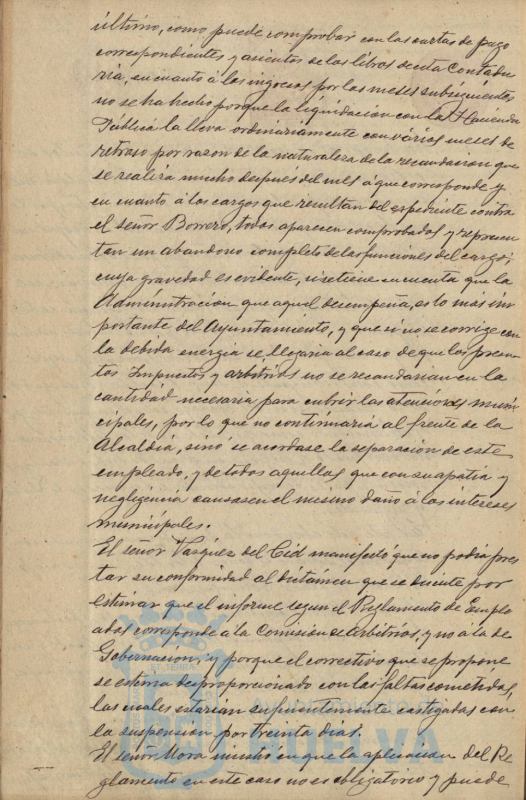 último, como puede comprobar con las cartas de pago
correspondientes y asientos de los libros de esta Contadu
ria, en cuanto á los ingresos por los meses subsiguientes
no se ha hecho porque la liquidación con la Hacienda
Pública la lleva ordinariamente con varios meses de
retraso por razon de la naturaleza de la recaudacion que
se realiza mucho despues del mes á que corresponde y
en cuanto á los cargos que resultan del espediente contra
el señor Borrero, todos aparecen comprobados y represen
tan un abandono completo de las funciones del cargo;
cuya gravedad es evidente, si se tiene en cuenta que la
Administracion que aquel desempeña, es lo más im
portante del Ayuntamiento, y que si no se corrige con
la debida energia se llegaria al caso de que los
Impuestos y arbitrios no se recaudarian en la
cantidad necesaria para cubrir las atenciones muni
cipales, por lo que no continuaria al frente de la
Alcaldia, sinó se acordase la separación de este
empleado, y de todos aquellos que con su apatia y
negligencia causasen el mismo daño á los intereses
municipales.
El señor Vazquez del Cid manifestó que no podia pres
tar su conformidad al dictámen que se discute por
estimar que el informe segun el Reglamento de Emple
ados corresponde á la Comisión de Arbitrios, y no á la de
Gobernación, y porque el correctivo que se propone
se estima desproporcionado con las faltas cometidas,
las cuales estarian suficientemente castigadas con
la suspension por treinta dias.
El señor Mora insistió en que la aplicacion del Re
glamento en este caso no es obligatorio y puede
HUELVA